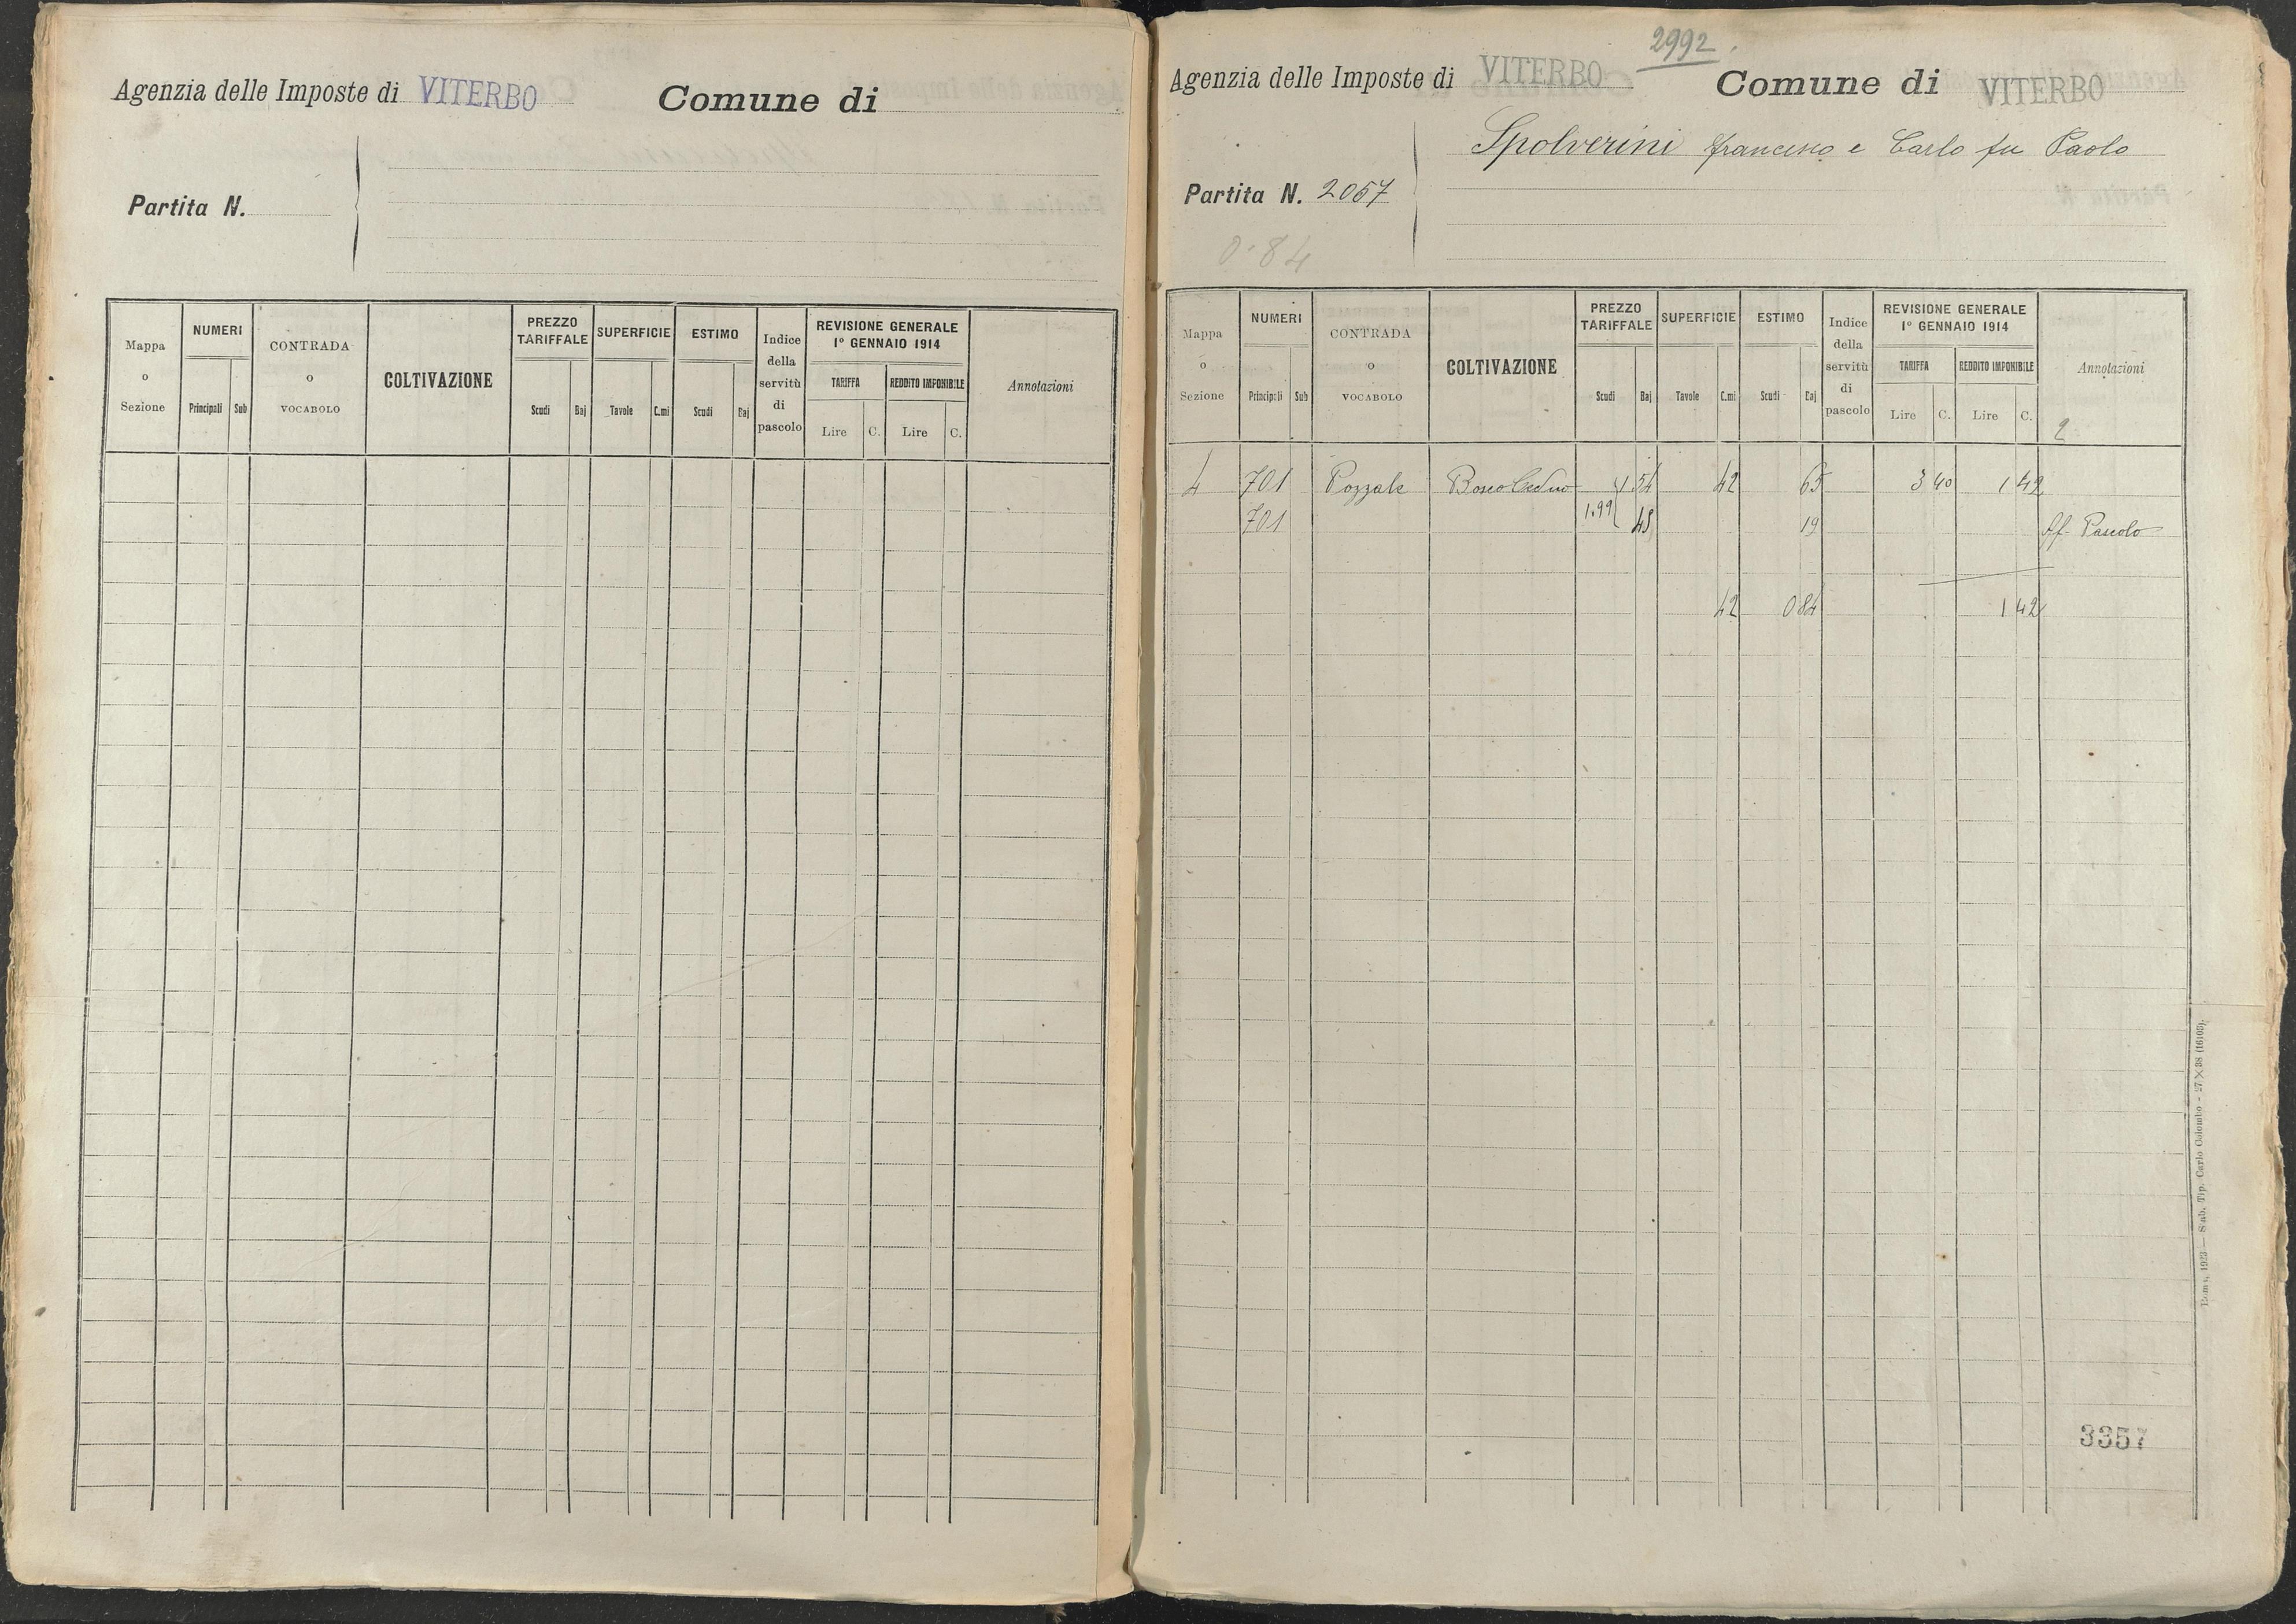 Agenzia delle Imposte di VITERBO Comune di
Partita N.
Mappa o Sezione
NUMERI
Principali Sub
CONTRADA o VOCABOLO
COLTIVAZIONE
PREZZO TARIFFALE
Scudi Baj
SUPERFICIE
Tavole C.mi
ESTIMO
Scudi Baj
Indice della servitù di pascolo
REVISIONE GENERALE
1° GENNAIO 1914
TARIFFA REDDITO IMPONIBILE
Lire C. Lire C.
Annotazioni
2992
Agenzia delle Imposte di VITERBO Comune di VITERBO
Spolverini Francesco e Carlo fu Paolo
Partita N. 2057
0.84
Mappa o Sezione
NUMERI
Principali Sub
CONTRADA o VOCABOLO
COLTIVAZIONE
PREZZO TARIFFALE
Scudi Baj
SUPERFICIE
Tavole C.mi
ESTIMO
Scudi Baj
Indice della servitù di pascolo
REVISIONE GENERALE
1° GENNAIO 1914
TARIFFA REDDITO IMPONIBILE
Lire C. Lire C.
Annotazioni
2
4 701 Pozzale Bosco Ceduo 1 54 42 65 3 40 1 42
701 1.99 45 19 Af. Pascolo
42 0 84 1 42
3357
Roma, 1923 — Stab. Tip. Carlo Colombo - 27×38 (16109)